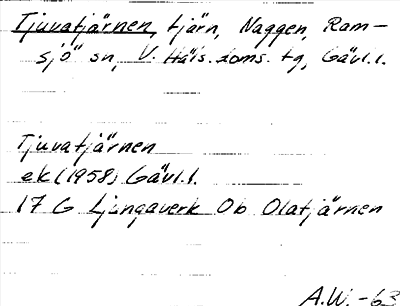 Tjuvatjärnen, tjärn, Naggen, Ram-
sjö sn, V. Häls. doms. tg, Gävl.l.
Tjuvatjärnen
ek (1958) Gävl.l.
17 G Ljungaverk Ob Olatjärnen
A.W. -63